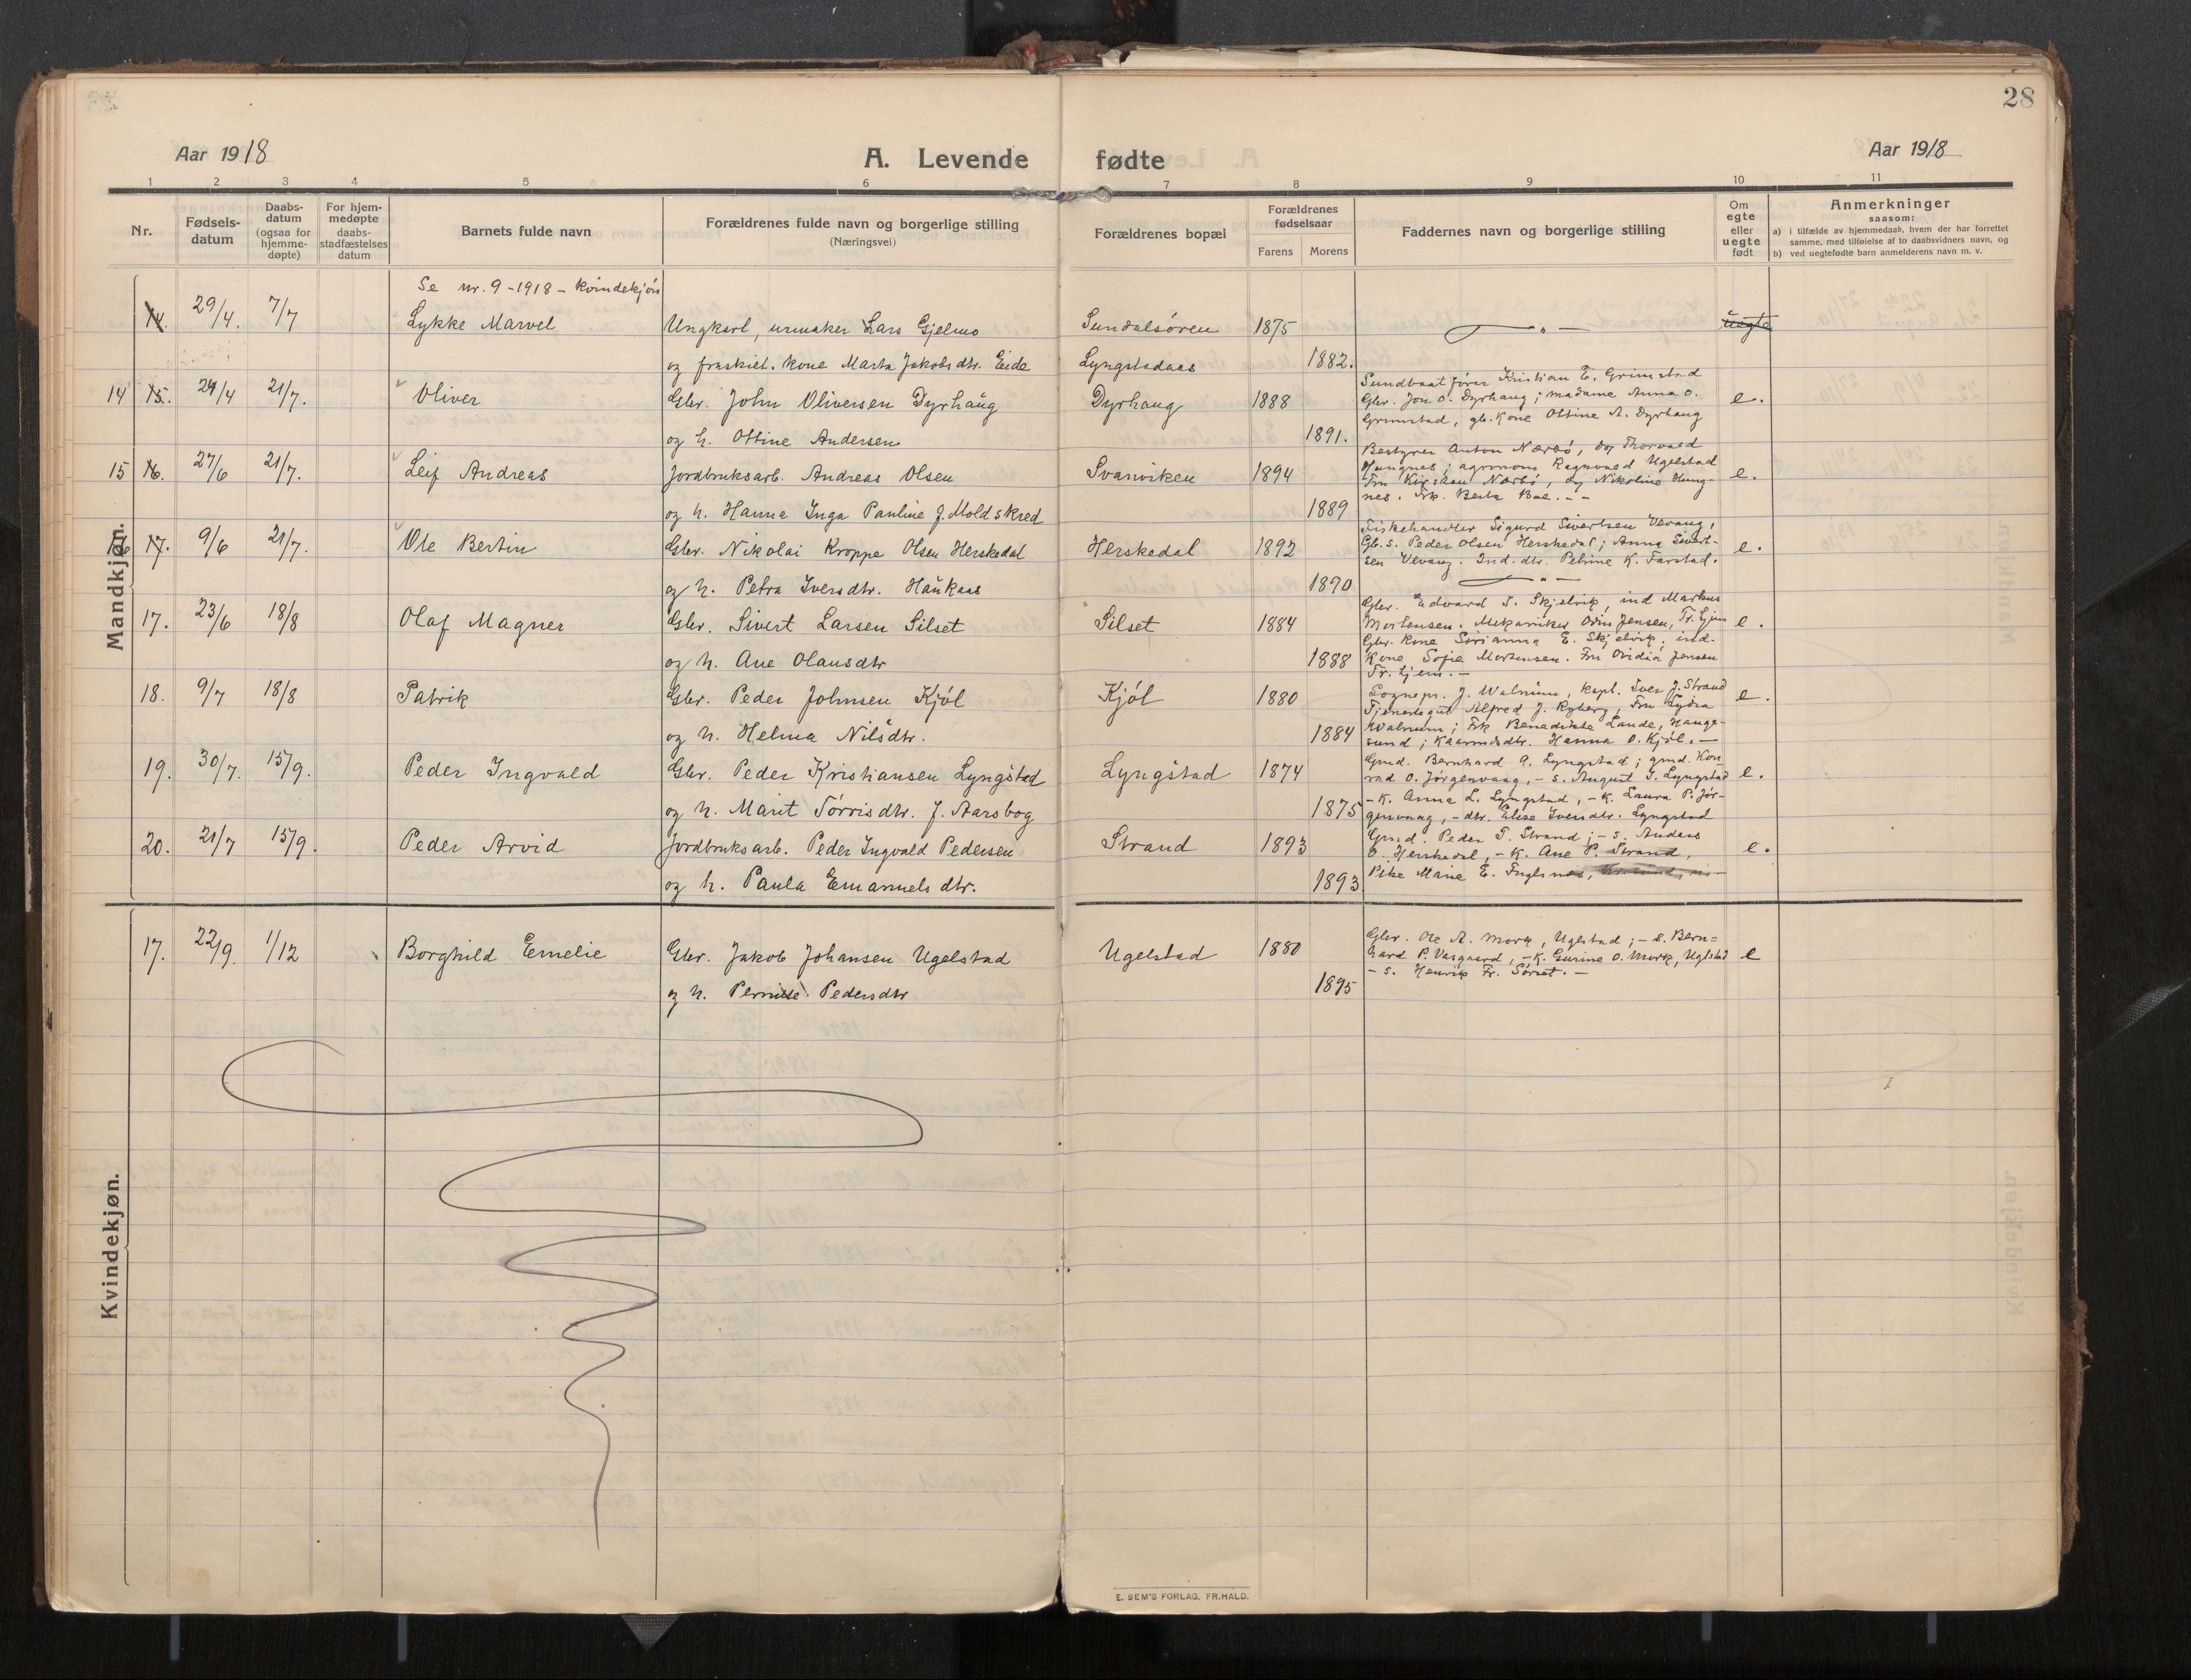 28
Aar 1918
A. Levende fødte
Aar 1918
1 2 3 4 5 6 7 8 9 10 11
Nr.
Fødsels-
datum
Daabs-
datum
(ogsaa for
hjemme-
døpte)
For hjem-
medøpte
daabs-
stadfæstelses
datum
Barnets fulde navn
Forældrenes fulde navn og borgerlige stilling
(Næringsvei)
Forældrenes bopæl
Forældrenes
fødselsaar
Farens Morens
Faddernes navn og borgerlige stilling
Om
egte
eller
uegte
født
Anmerkninger
saasom:
a) i tilfælde av hjemmedaab, hvem der har forrettet
samme, med tilføielse af to daabsvidners navn, og
b) ved uegtefødte barn anmelderens navn m. v.
Mandkjøn.
Se nr. 9 - 1918 - kvindekjøn
14. 29/4. 7/7 Lykke Marvel Ungkarl, urmaker Lars Gjelmo Sundalsøren 1875 — " — uegte
og fraskilt. kone Marta Jakobsdtr. Eide Lyngstadaas 1882.
14 15. 24/4 21/7. Oliver Gbr. John Oliversen Dyrhaug Dyrhaug 1888 e.
og h. Ottine Andersen 1891.
Sundbaatfører Kristian E. Grimstad
Gbr. Jon O. Dyrhaug; madame Anna O.
Grimstad, gb. kone Ottine A. Dyrhaug
15 16. 27/6 21/7. Leif Andreas Jordbruksarb. Andreas Olsen Svanviken 1894 e.
og h. Hanna Inga Pauline J. Moldskred 1889
Bestyrer Anton Nærbø, og Thorvald
Hungnes; agronom Ragnvald Ugelstad
Fru Nærbø, og Nikoline Hung-
nes. Frk. Berta Boe. - -
16 17. 9/6 21/7. Ole Bertin Gbr. Nikolai Kroppe Olsen Herskedal Herskedal 1892 e.
og h. Petra Iversdtr. Haukaas 1890
Fiskehandler Sigurd Sivertsen Vevang,
Gb. s. Peder Olsen Herskedal; Anna Sivert-
sen Vevang. Ind. dtr. Petrine K. Farstad.
— " —
17. 23/6 18/8 Olaf Magner Gbr. Sivert Larsen Silset Silset 1884 e.
og h. Ane Olausdtr 1888
Gbr. Edvard S. Skjelvik, ind Markus
Mortensen. Mekaniker Odin Jensen, Tr. hjem
Gbr. kone Sørianna E. Skjelvik; ind.
kone Sofie Mortensen. Fru Ovidia Jensen
Tr. hjem. -
18. 9/7 18/8 Patrik Gbr. Peder Johnsen Kjøl Kjøl 1880 e.
og h. Helma Nilsdtr. 1884
Sognepr. J. Walnum, kapt. Iver J. Strand
Tjenestegut Alfred J. Ryberg, Fru Lydia
Walnum; Frk Benedikte Lande, Hauge-
sund; Kaarmdsdtr. Hanna O. Kjøl. -
19. 30/7. 15/9. Peder Ingvald Gbr. Peder Kristiansen Lyngstad Lyngstad 1874 e.
og h. Marit Tørrisdtr. J. Aarsbog 1875
Gmd. Bernhard A. Lyngstad; gmd. Kon-
rad O. Jørgenvaag, - s. August J. Lyngstad
- K. Anna L. Lyngstad, - K. Laura P. Jør-
genvaag, - dtr. Elise Iversdtr. Lyngstad
20. 21/7 15/9. Peder Arvid Jordbruksarb. Peder Ingvald Pedersen Strand 1893 e.
og h. Paula Emanuels dtr. 1893
Gmd. Peder T. Strand; - s. Anders
O. Herskedal, - K. Ane P. Strand,
Pike Marie E. Fuglsnes,
Kvindekjøn.
17. 22/9. 1/12 Borghild Emelie Gbr. Jakob Johansen Ugelstad Ugelstad 1880 e
og h. Pernille Pedersdtr 1895
Gbr. Ole A. Mork, Uglstad; - s. Bern=
hard P. Vasgaard, - K. Gurine O. Mork, Uglstad
- s. Henrik Fr. Sørset. -
E. SEM'S FORLAG, FR.HALD.